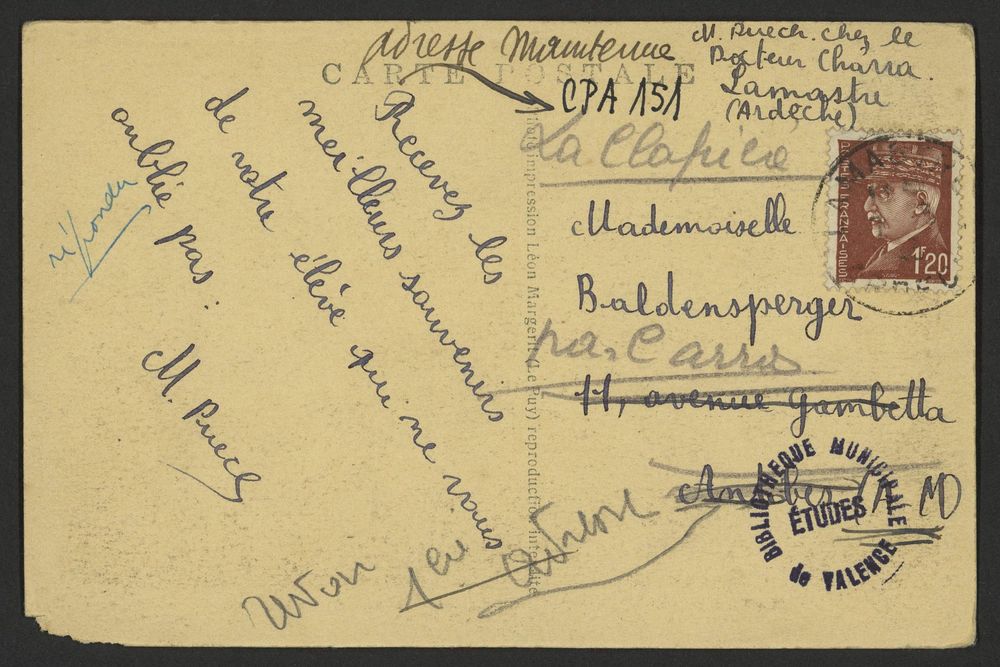 adresse maintenue
M. Puech. chez le
Docteur Charra.
Lamastre
(Ardèche)
CARTE POSTALE
CPA 151
Recevez les
meilleurs souvenirs
de votre élève qui ne vous
oublie pas :
M. Puech
répondu
impression Léon Margerit (Le Puy) reproduction interdite
Mademoiselle
Baldensperger
par Carros
11, avenue Gambetta
Antibes (A M)
POSTES FRANÇAISES
1F20
BIBLIOTHEQUE MUNICIPALE
ÉTUDES
de VALENCE